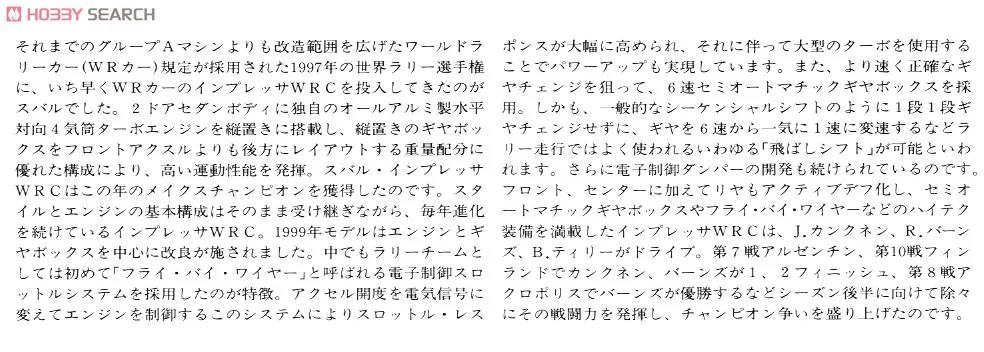 HOBBY SEARCH
それまでのグループAマシンよりも改造範囲を広げたワールドラ
リーカー(WRカー)規定が採用された1997年の世界ラリー選手権
に、いち早くWRカーのインプレッサWRCを投入してきたのが
スバルでした。2ドアセダンボディに独自のオールアルミ製水平
対向4気筒ターボエンジンを縦置きに搭載し、縦置きのギヤボッ
クスをフロントアクスルよりも後方にレイアウトする重量配分に
優れた構成により、高い運動性能を発揮。スバル・インプレッサ
WRCはこの年のメイクスチャンピオンを獲得したのです。スタ
イルとエンジンの基本構成はそのまま受け継ぎながら、毎年進化
を続けているインプレッサWRC。1999年モデルはエンジンとギ
ヤボックスを中心に改良が施されました。中でもラリーチームと
しては初めて「フライ・バイ・ワイヤー」と呼ばれる電子制御スロ
ットルシステムを採用したのが特徴。アクセル開度を電気信号に
変えてエンジンを制御するこのシステムによりスロットル・レス
ポンスが大幅に高められ、それに伴って大型のターボを使用する
ことでパワーアップも実現しています。また、より速く正確なギ
ヤチェンジを狙って、6速セミオートマチックギヤボックスを採
用。しかも、一般的なシーケンシャルシフトのように1段1段ギ
ヤチェンジせずに、ギヤを6速から一気に1速に変速するなどラ
リー走行ではよく使われるいわゆる「飛ばしシフト」が可能といわ
れます。さらに電子制御ダンパーの開発も続けられているのです。
フロント、センターに加えてリヤもアクティブデフ化し、セミオ
ートマチックギヤボックスやフライ・バイ・ワイヤーなどのハイテク
装備を満載したインプレッサWRCは、J.カンクネン、R.バーン
ズ、B.ティリーがドライブ。第7戦アルゼンチン、第10戦フィン
ランドでカンクネン、バーンズが1、2フィニッシュ、第8戦ア
クロポリスでバーンズが優勝するなどシーズン後半に向けて除々
にその戦闘力を発揮し、チャンピオン争いを盛り上げたのです。